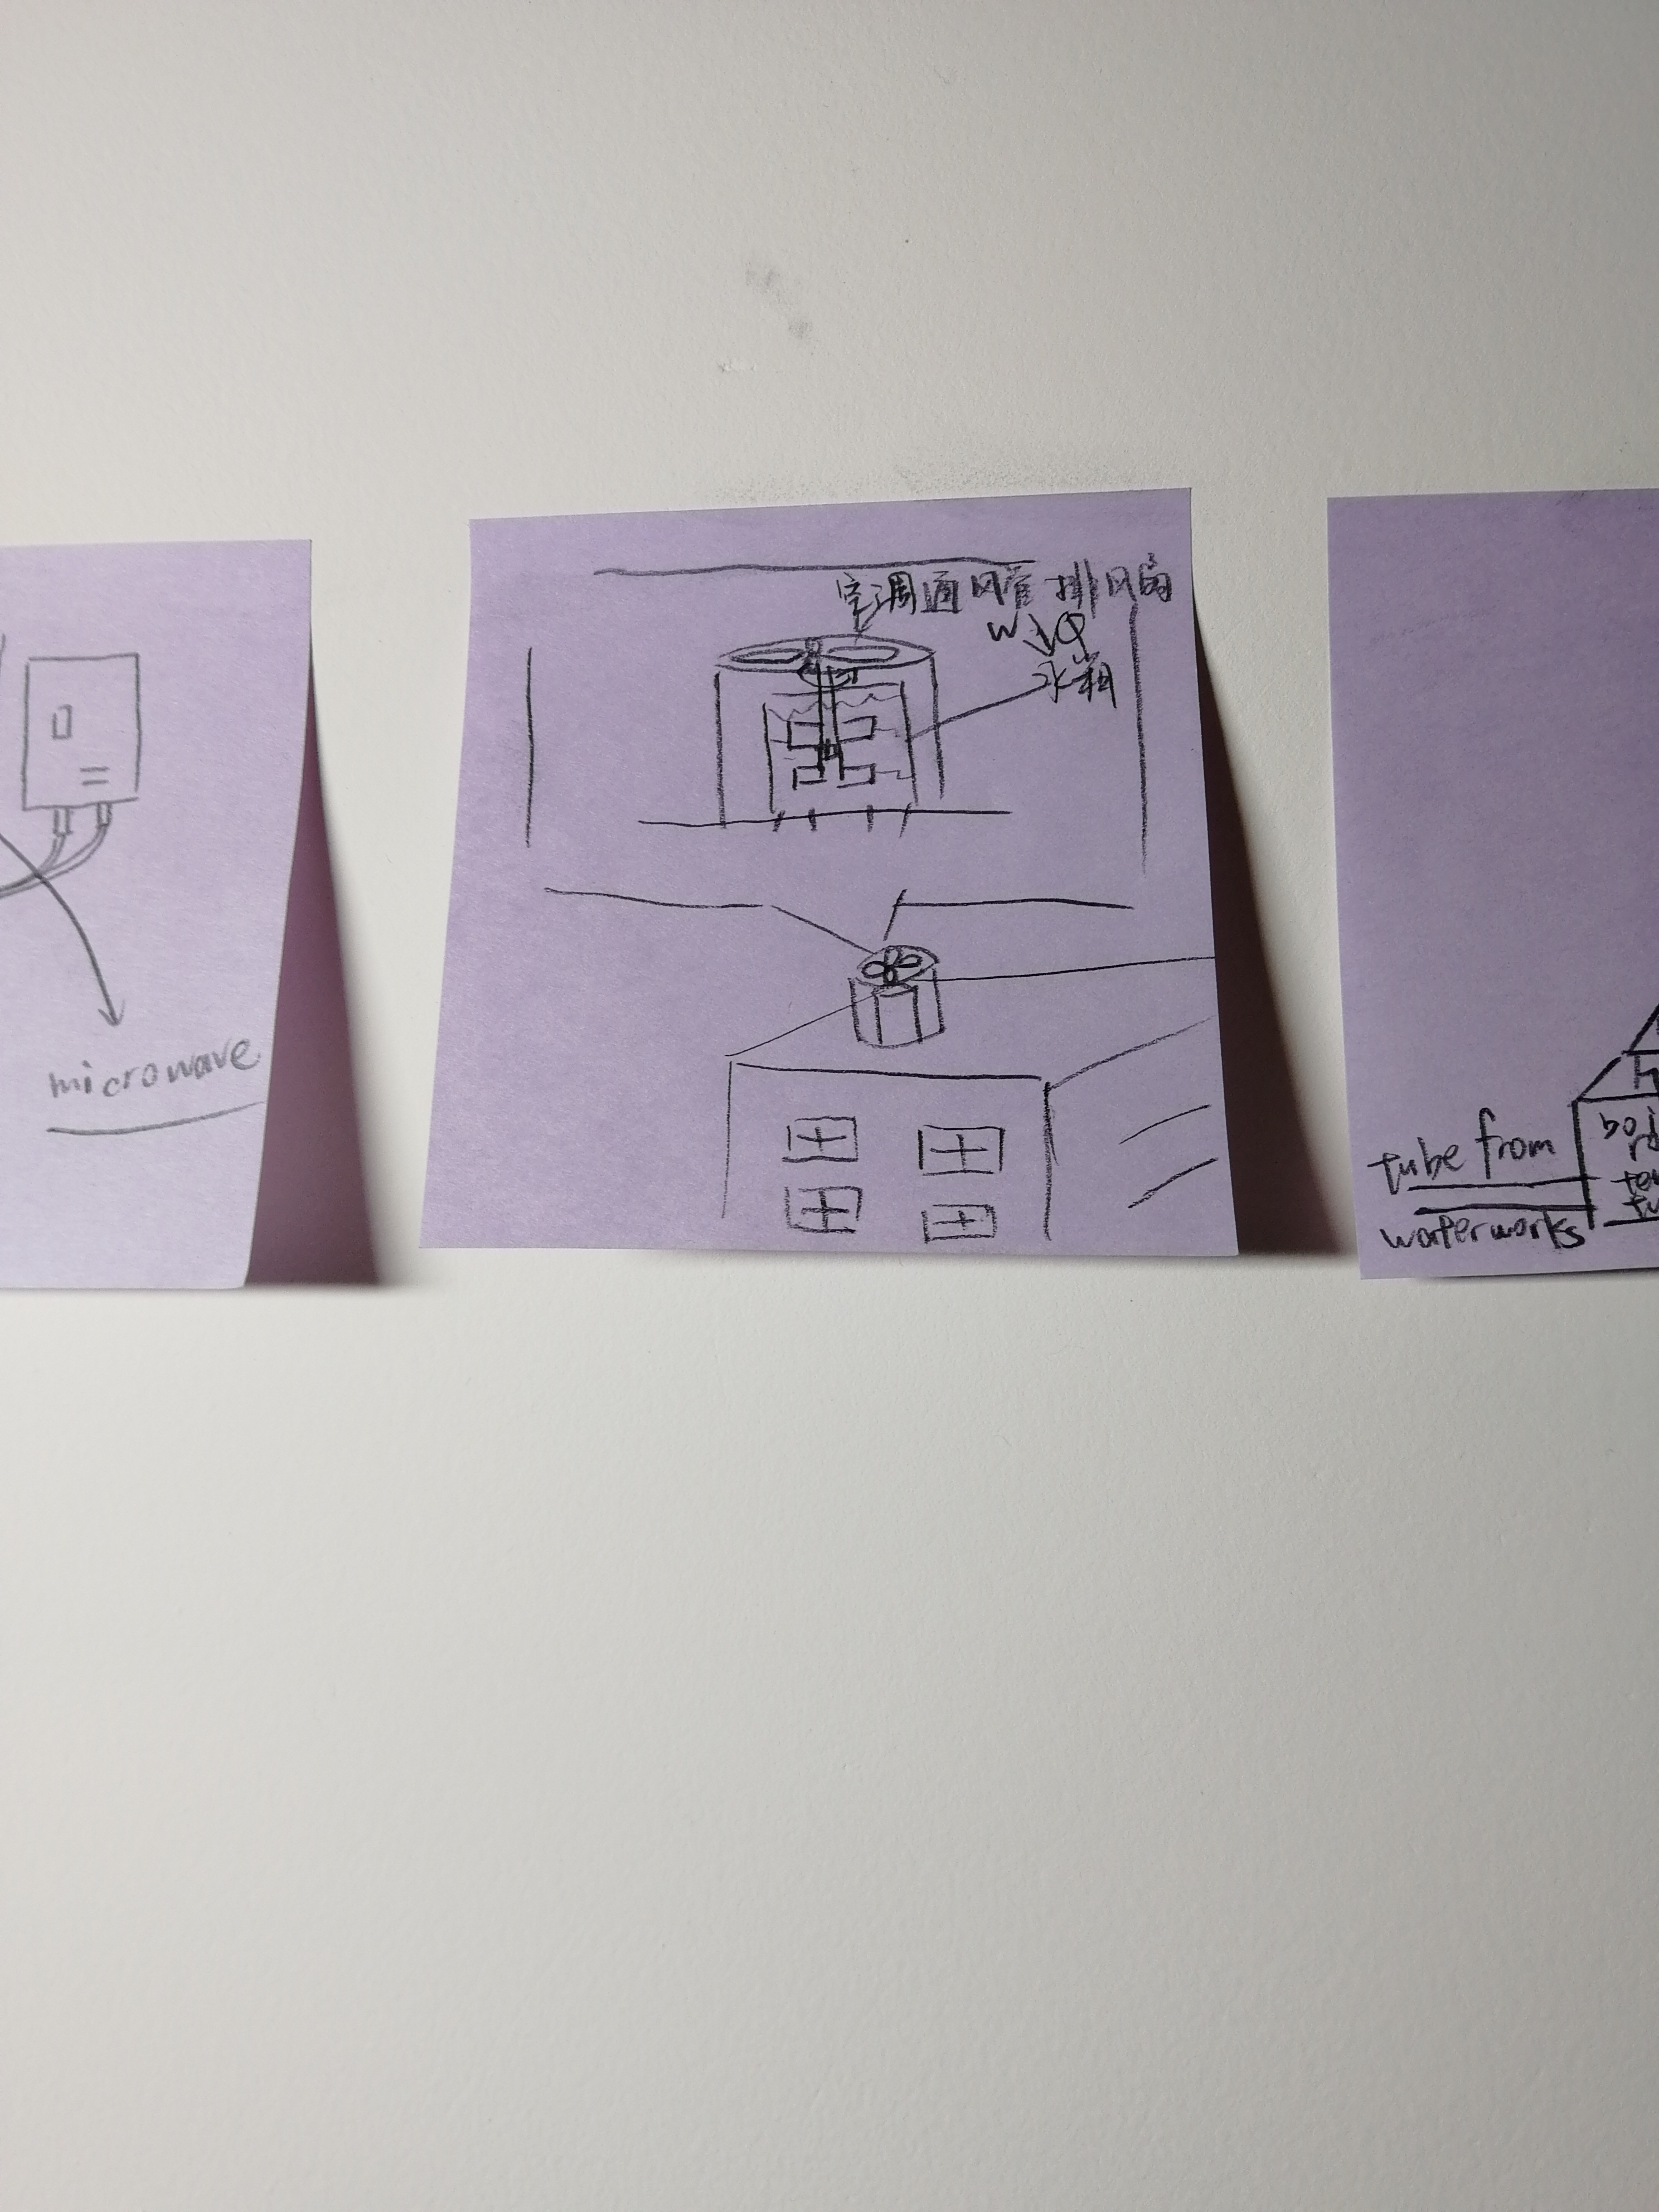 microwave
空调通风管排风扇
W→Q
水箱
tube from
waterworks